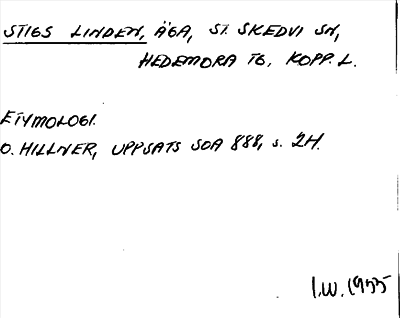 STIGS LINDEN, ÄGA, ST. SKEDVI SN,
HEDEMORA TG, KOPP. L.
ETYMOLOGI.
O. HILLNER, UPPSATS SOA 888, s. 24.
I.W. 1955